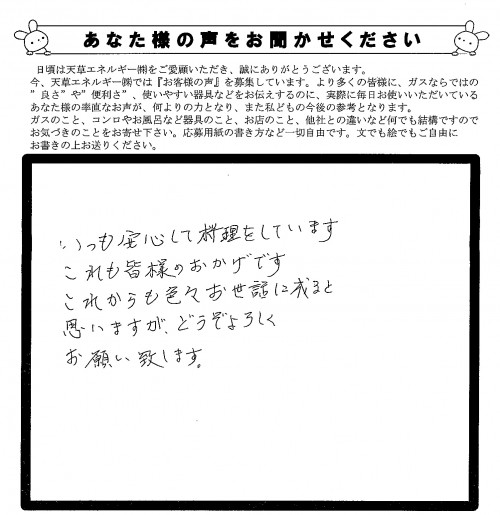 あなた様の声をお聞かせください
日頃は天草エネルギー㈱をご愛顧いただき、誠にありがとうございます。
今、天草エネルギー㈱では『お客様の声』を募集しています。より多くの皆様に、ガスならではの
”良さ”や”便利さ”、使いやすい器具などをお伝えするのに、実際に毎日お使いいただいている
あなた様の率直なお声が、何よりの力となり、また私どもの今後の参考となります。
ガスのこと、コンロやお風呂など器具のこと、お店のこと、他社との違いなど何でも結構ですので
お気づきのことをお寄せ下さい。応募用紙の書き方など一切自由です。文でも絵でもご自由に
お書きの上お送りください。
いつも安心して料理をしています
これも皆様のおかげです
これからも色々お世話に成ると
思いますが、どうぞよろしく
お願い致します。